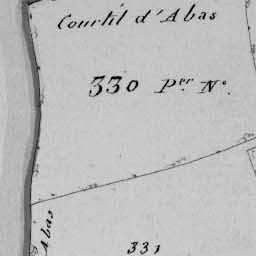 Courtil d'Abas
330 Per. No.
Abas
331